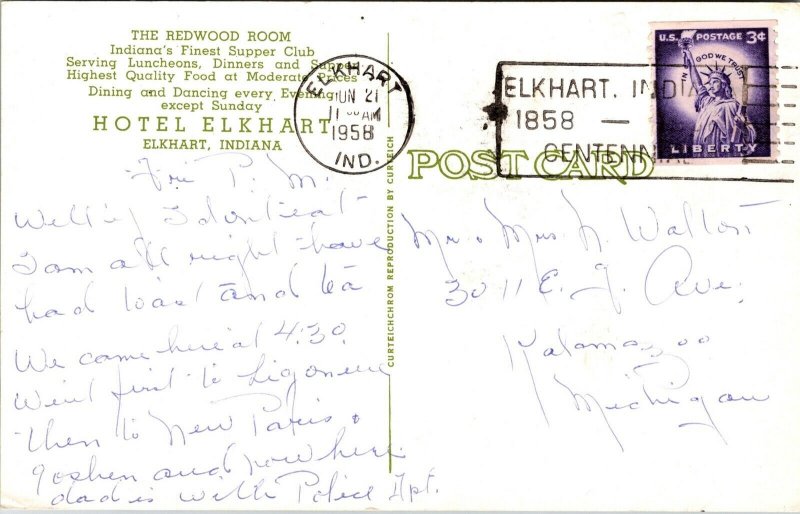 THE REDWOOD ROOM
Indiana's Finest Supper Club
Serving Luncheons, Dinners and Supper
Highest Quality Food at Moderate Prices
Dining and Dancing every Evening
except Sunday
HOTEL ELKHART
ELKHART, INDIANA
ELKHART
JUN 21
11 AM
1958
IND.
ELKHART, INDIANA
1858 —
CENTENNIAL
U.S. POSTAGE 3¢
IN GOD WE TRUST
LIBERTY
POST CARD
CURTEICHCHROM REPRODUCTION BY CURTEICH
Fri P. M.
Well if I don't eat
I am all right have
had toast and tea
We came here at 4:30.
Went first to Ligonier
then to New Paris &
Goshen and now here
dad is with Police Dpt.
Mr. & Mrs N. Walton
3011 E. G. Ave.
Kalamazoo
Michigan